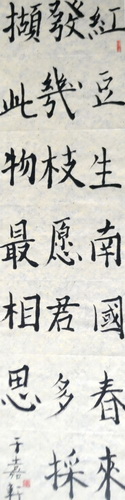 紅豆生南國春來
發幾枝愿君多採
擷此物最相思